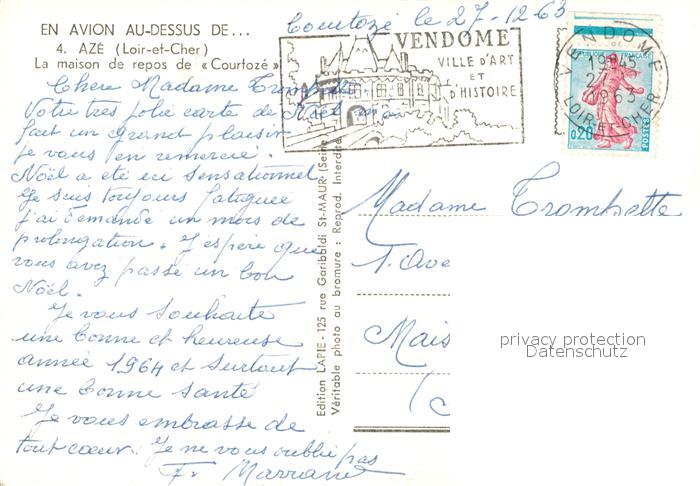 EN AVION AU-DESSUS DE...
4. AZÉ (Loir-et-Cher)
La maison de repos de « Courtozé »
Courtozé le 27-12-63
VENDOME
VILLE D'ART
ET
D'HISTOIRE
VENDOME
19H45
1963
LOIR & CHER
REPUBLIQUE FRANÇAISE
0,20
POSTES
Chère Madame Trombette
Votre très jolie carte de Noël m'a
fait un grand plaisir
je vous en remercie.
Noël a été ici sensationnel
Je suis toujours fatiguée
j'ai demandé un mois de
prolongation. J'espère que
vous avez passé un bon
Noël.
Je vous souhaite
une bonne et heureuse
année 1964 et surtout
une bonne santé
Je vous embrasse de
tout cœur. Je ne vous oublie pas
F.
Edition LAPIE - 125 rue Garibaldi St-MAUR (Seine
Véritable photo au bromure : Reprod. Interdite
Madame Trombette
1. Ave
Mais
privacy protection
Datenschutz